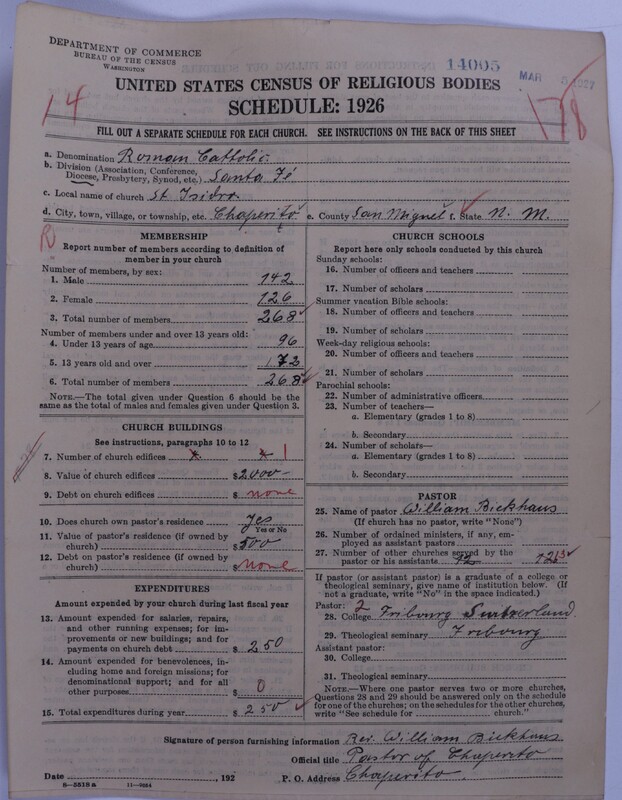 DEPARTMENT OF COMMERCE
BUREAU OF THE CENSUS
WASHINGTON
14005
MAR 5 1927
UNITED STATES CENSUS OF RELIGIOUS BODIES
SCHEDULE: 1926
14
178
FILL OUT A SEPARATE SCHEDULE FOR EACH CHURCH. SEE INSTRUCTIONS ON THE BACK OF THIS SHEET
a. Denomination Roman Catholic
b. Division (Association, Conference,
Diocese, Presbytery, Synod, etc.) Santa Fé
c. Local name of church St Isidro
d. City, town, village, or township, etc. Chaperito e. County San Miguel f. State N. M.
R
MEMBERSHIP
Report number of members according to definition of
member in your church
Number of members, by sex:
1. Male 142
2. Female 126
3. Total number of members 268
Number of members under and over 13 years old:
4. Under 13 years of age 96
5. 13 years old and over 172
6. Total number of members 268
NOTE.—The total given under Question 6 should be the
same as the total of males and females given under Question 3.
CHURCH BUILDINGS
See instructions, paragraphs 10 to 12
7. Number of church edifices 1
8. Value of church edifices $2000-
9. Debt on church edifices $ none
10. Does church own pastor's residence yes
Yes or No
11. Value of pastor's residence (if owned by
church) $500
12. Debt on pastor's residence (if owned by
church) $ None
EXPENDITURES
Amount expended by your church during last fiscal year
13. Amount expended for salaries, repairs,
and other running expenses; for im-
provements or new buildings; and for
payments on church debt $ 250
14. Amount expended for benevolences, in-
cluding home and foreign missions; for
denominational support; and for all
other purposes $ 0
15. Total expenditures during year $ 250
CHURCH SCHOOLS
Report here only schools conducted by this church
Sunday schools:
16. Number of officers and teachers
17. Number of scholars
Summer vacation Bible schools:
18. Number of officers and teachers
19. Number of scholars
Week-day religious schools:
20. Number of officers and teachers
21. Number of scholars
Parochial schools:
22. Number of administrative officers
23. Number of teachers—
a. Elementary (grades 1 to 8)
b. Secondary
24. Number of scholars—
a. Elementary (grades 1 to 8)
b. Secondary
PASTOR
25. Name of pastor William Bickhaus
(If church has no pastor, write "None")
26. Number of ordained ministers, if any, em-
ployed as assistant pastors
27. Number of other churches served by the
pastor or his assistants 12
If pastor (or assistant pastor) is a graduate of a college or
theological seminary, give name of institution below. (If
not a graduate, write "No" in the space indicated.)
Pastor: 2
28. College Fribourg Switzerland
29. Theological seminary Fribourg
Assistant pastor:
30. College
31. Theological seminary
NOTE.—Where one pastor serves two or more churches,
Questions 28 and 29 should be answered only on the schedule
for one of the churches; on the schedules for the other churches,
write "See schedule for ........ church."
Signature of person furnishing information Rev. William Bickhaus
Official title Pastor of Chaperito
Date ........, 192 P. O. Address Chaperito.
8—5518a 11—9264